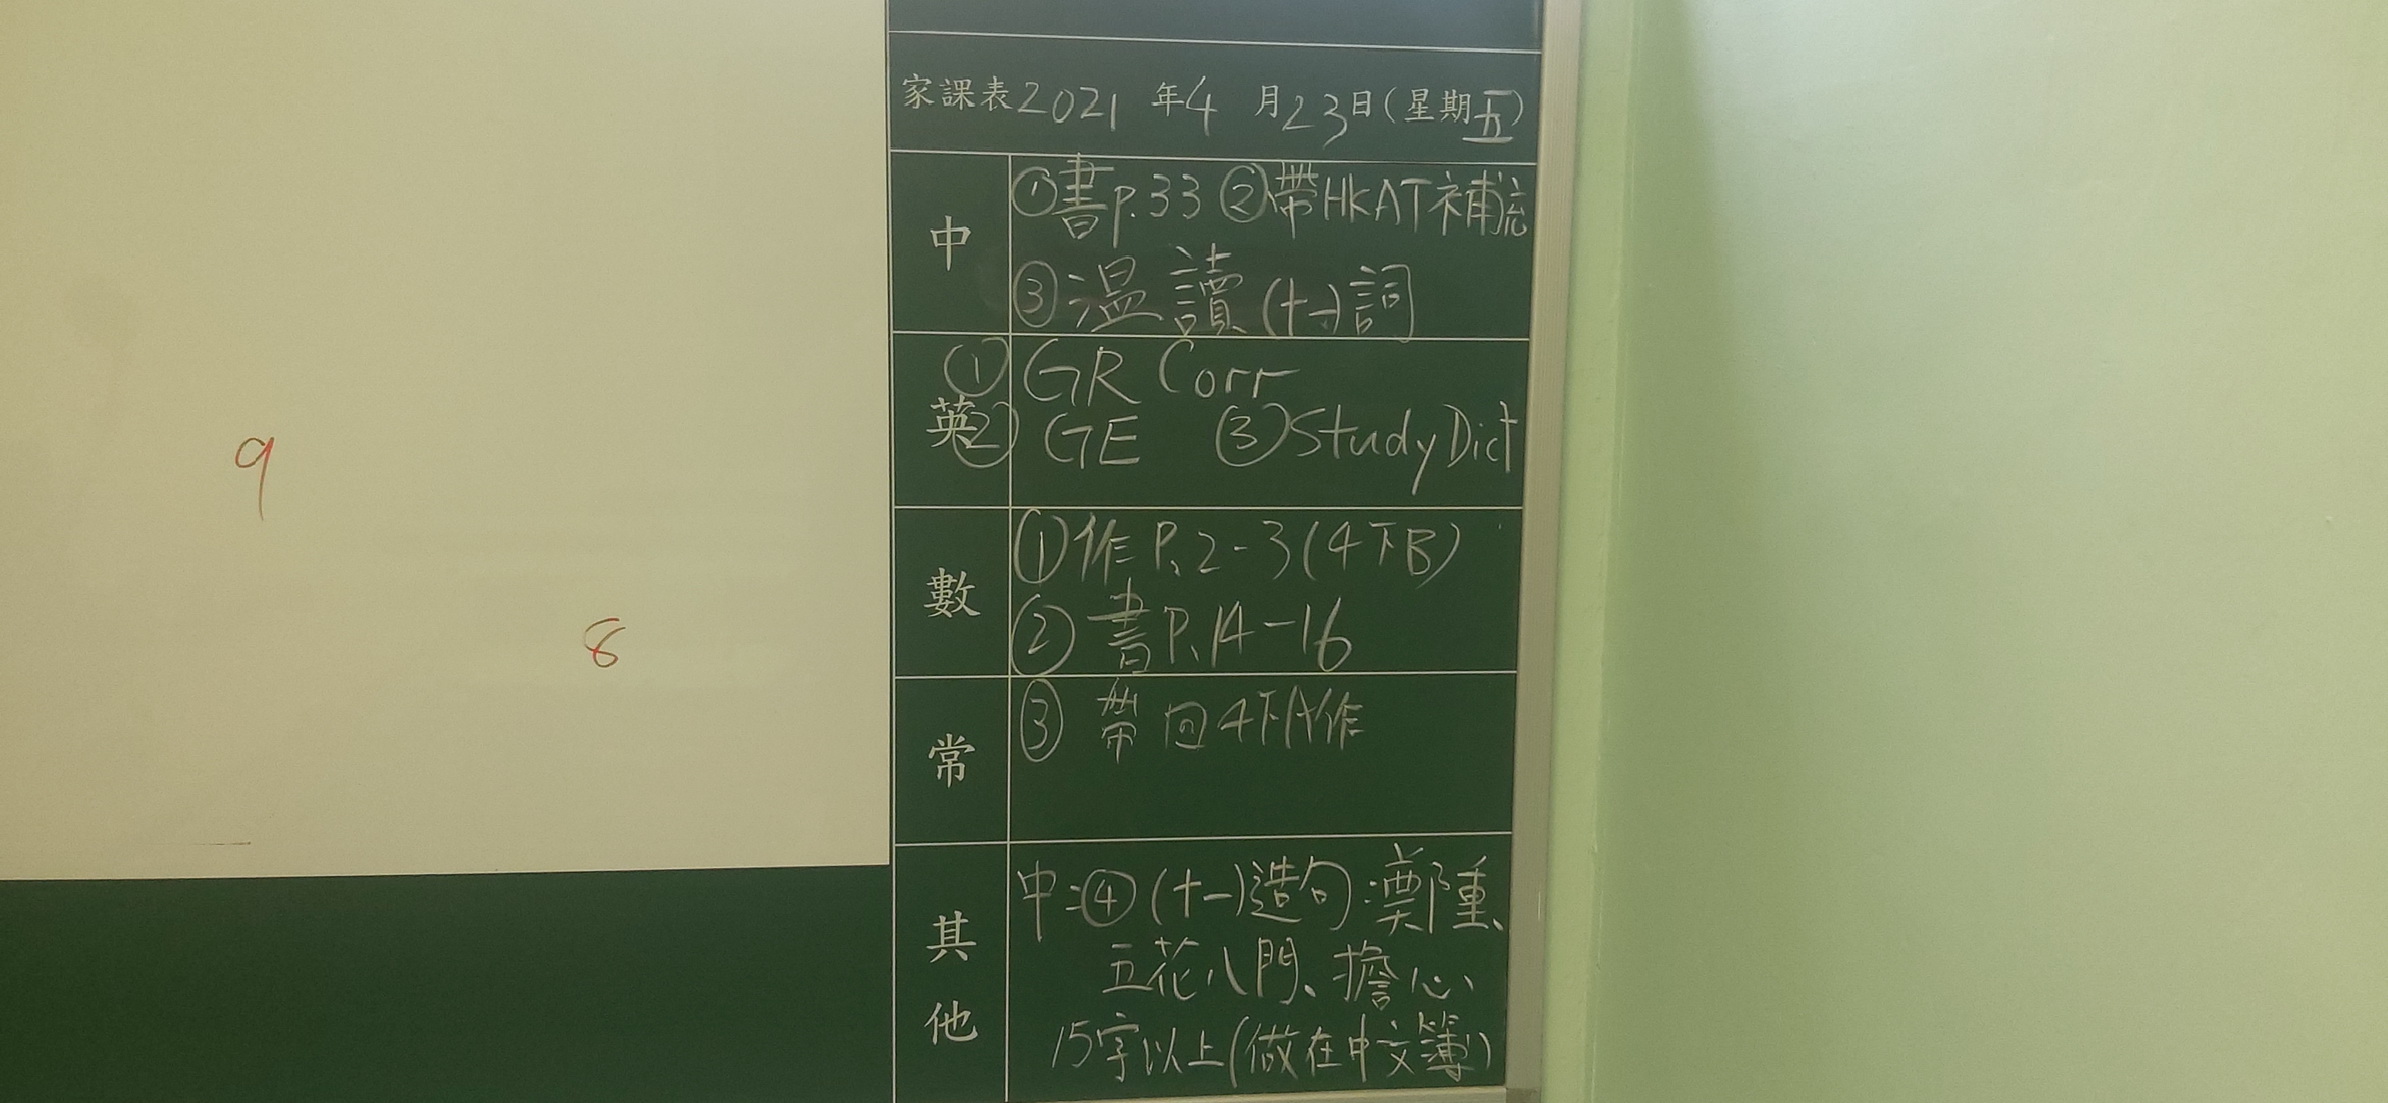 家課表2021 年4 月23日(星期五)
中 ①書P.33 ②帶HKAT補充
③溫讀(十一)詞
英 ① GR Corr
② GE ③Study Dict
數 ①作P.2-3(4下B)
② 書P.14-16
常 ③ 帶回4下A作
其他 中:④(十一)造句:鄭重、
五花八門、擔心、
15字以上(做在中文簿)
9
8